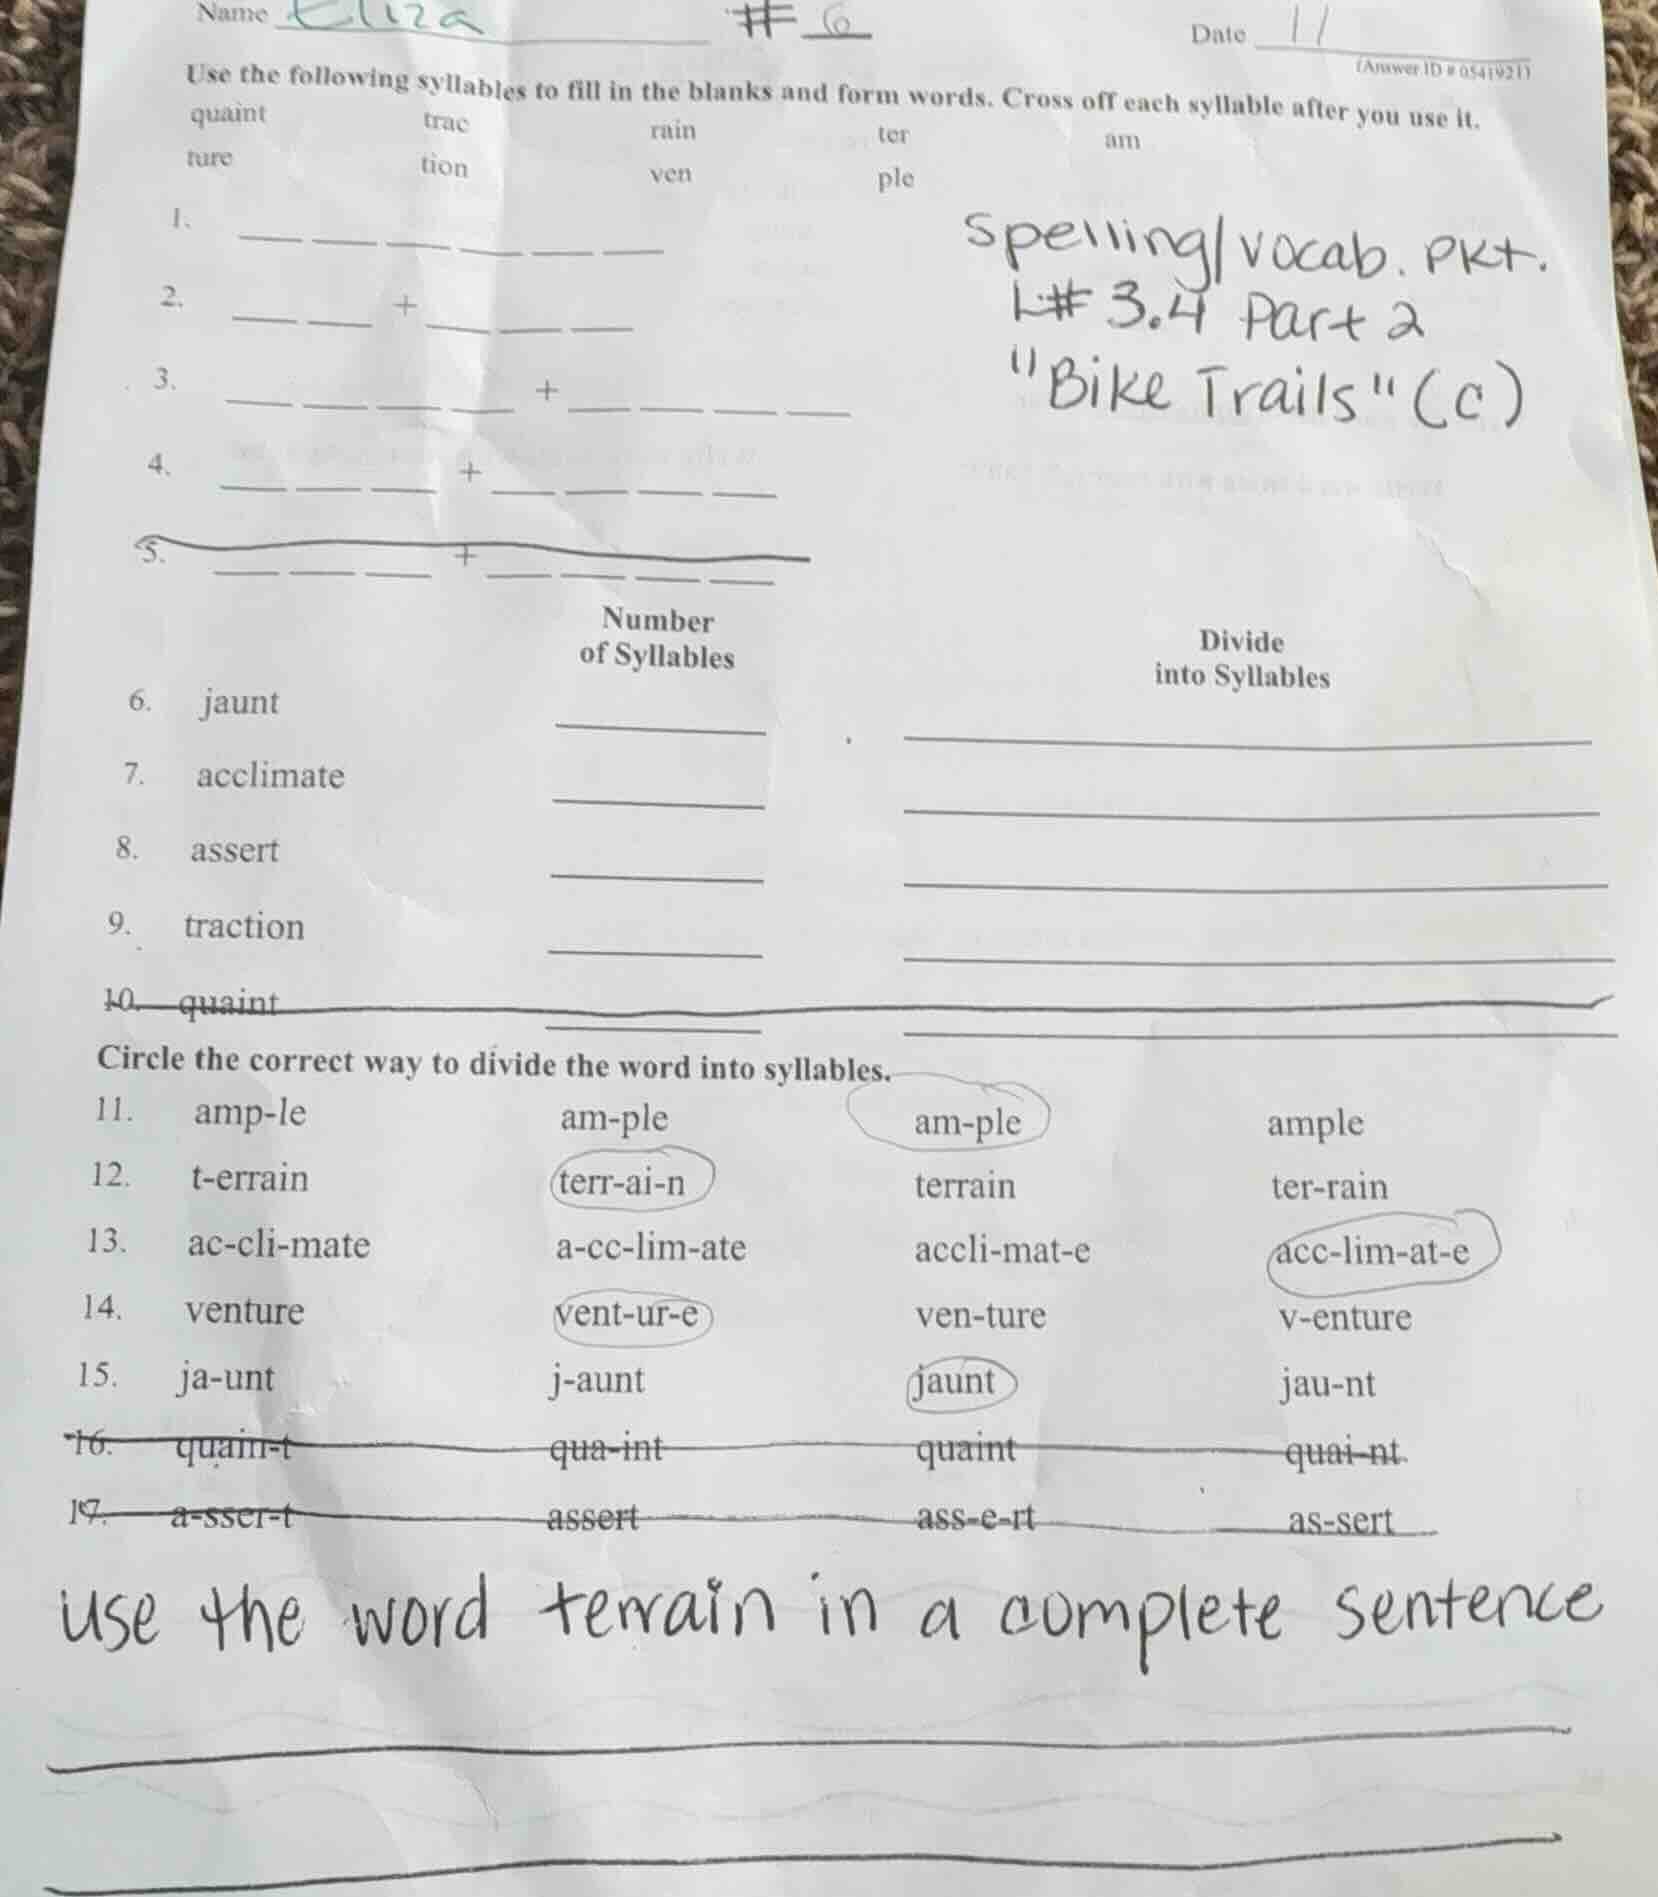 Name Eliza # 6 Date 11
(Answer ID # 0541921)
Use the following syllables to fill in the blanks and form words. Cross off each syllable after you use it.
quaint trac rain ter am
ture tion ven ple
1.
2. +
3. +
4. +
5. +
Spelling/Vocab. PKt.
L# 3.4 Part 2
"Bike Trails" (C)
Number of Syllables
Divide into Syllables
6. jaunt
7. acclimate
8. assert
9. traction
10. quaint
Circle the correct way to divide the word into syllables.
11. amp-le am-ple am-ple ample
12. t-errain terr-ai-n terrain ter-rain
13. ac-cli-mate a-cc-lim-ate accli-mat-e acc-lim-at-e
14. venture vent-ur-e ven-ture v-enture
15. ja-unt j-aunt jaunt jau-nt
16. quain-t qua-int quaint quai-nt
17. a-sser-t assert ass-e-rt as-sert
use the word terrain in a complete sentence